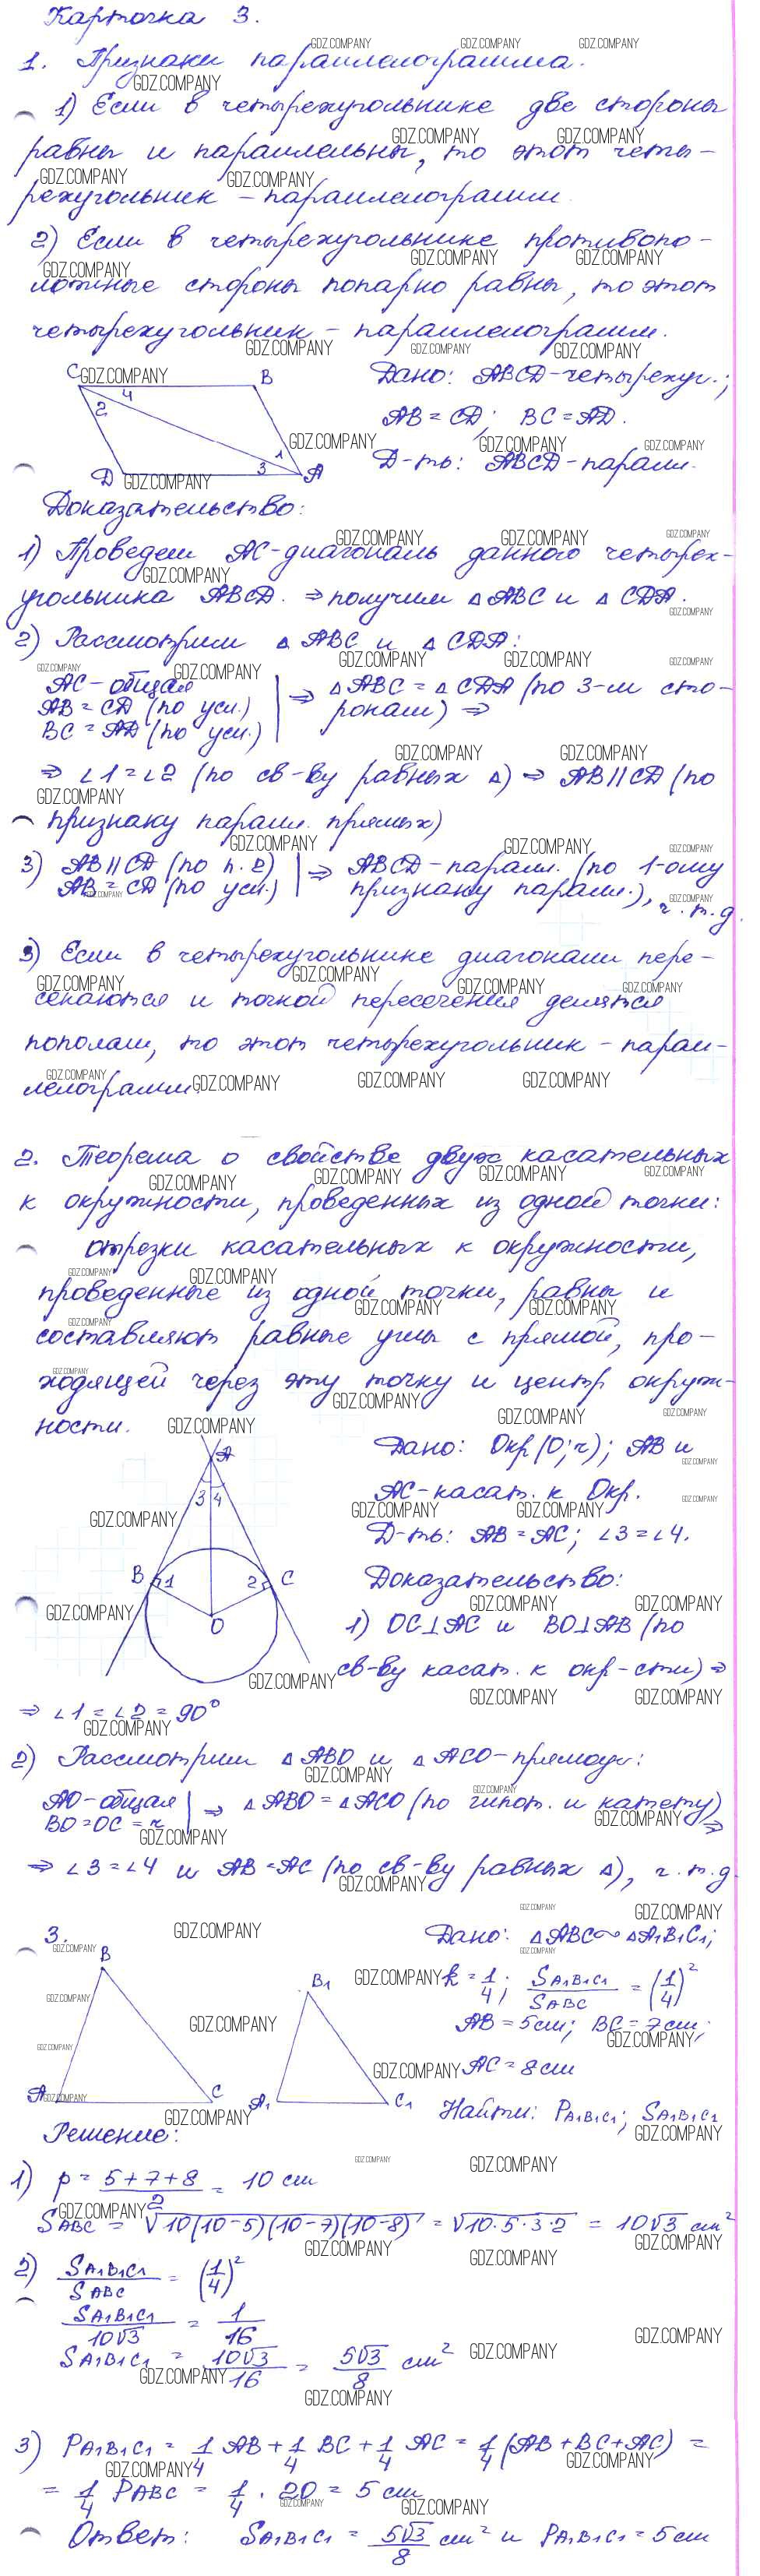 Карточка 3.
1. Признаки параллелограмма.
1) Если в четырехугольнике две стороны
равны и параллельны, то этот четы-
рехугольник - параллелограмм.
2) Если в четырехугольнике противопо-
ложные стороны попарно равны, то этот
четырехугольник - параллелограмм.
C B
4
2
1
3
D A
Дано: ABCD-четырехуг.;
AB = CD; BC = AD.
Д-ть: ABCD-паралл.
Доказательство:
1) Проведем AC-диагональ данного четырех-
угольника ABCD. ⇒ получим △ABC и △CDA.
2) Рассмотрим △ABC и △CDA:
AC-общая
AB = CD (по усл.)
BC = AD (по усл.)
⇒ △ABC = △CDA (по 3-м сто-
ронам) ⇒
⇒ ∠1=∠2 (по св-ву равных △) ⇒ AB||CD (по
признаку паралл. прямых)
3) AB||CD (по п. 2)
AB = CD (по усл.)
⇒ ABCD-паралл. (по 1-ому
признаку паралл.), ч.т.д.
3) Если в четырехугольнике диагонали пере-
секаются и точкой пересечения делятся
пополам, то этот четырехугольник - парал-
лелограмм.
2. Теорема о свойстве двух касательных
к окружности, проведенных из одной точки:
отрезки касательных к окружности,
проведенные из одной точки, равны и
составляют равные углы с прямой, про-
ходящей через эту точку и центр окруж-
ности.
A
3 4
B 1 2 C
O
Дано: Окр(O;r); AB и
AC-касат. к Окр.
Д-ть: AB = AC; ∠3=∠4.
Доказательство:
1) OC⊥AC и BO⊥AB (по
св-ву касат. к окр-сти) ⇒
⇒ ∠1=∠2=90°
2) Рассмотрим △ABO и △ACO-прямоуг:
AO-общая
BO=OC=r
⇒ △ABO=△ACO (по гипот. и катету) ⇒
⇒ ∠3=∠4 и AB=AC (по св-ву равных △), ч.т.д.
3.
B
A C
B1
A1 C1
Дано: △ABC∾△A1B1C1;
k = 1/4; SA1B1C1/SABC = (1/4)²
AB = 5см; BC = 7см;
AC = 8см
Найти: PA1B1C1; SA1B1C1
Решение:
1) p = (5+7+8)/2 = 10 см
SABC = √10(10-5)(10-7)(10-8) = √10·5·3·2 = 10√3 см²
2) SA1B1C1/SABC = (1/4)²
SA1B1C1/10√3 = 1/16
SA1B1C1 = 10√3/16 = 5√3/8 см²
3) PA1B1C1 = 1/4 AB + 1/4 BC + 1/4 AC = 1/4 (AB+BC+AC) =
= 1/4 PABC = 1/4 · 20 = 5 см
Ответ: SA1B1C1 = 5√3/8 см² и PA1B1C1 = 5см
GDZ.COMPANY